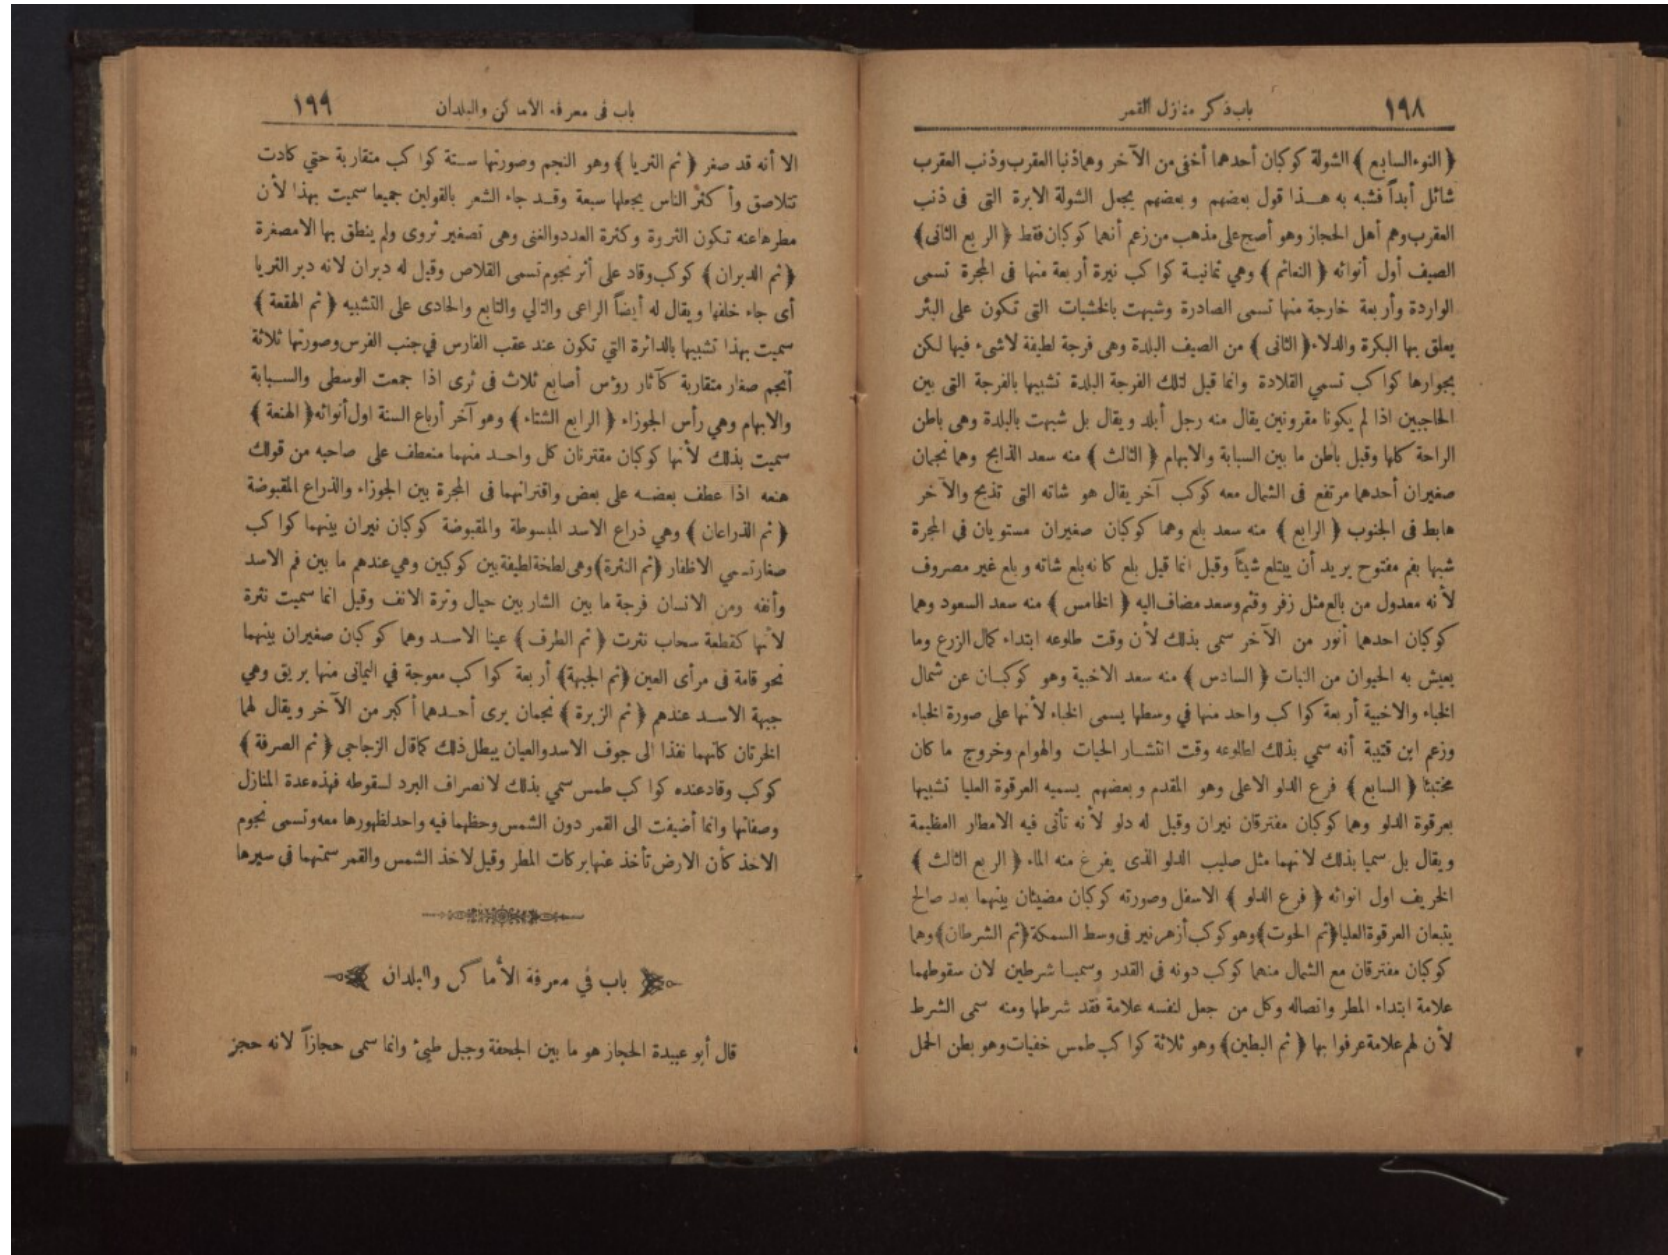 ١٩٨
باب ذكر منازل القمر
﴿ النوء السابع ﴾ الشولة كوكبان أحدهما أخفى من الآخر وهما ذنبا العقرب وذنب العقرب
شائل أبداً فشبه به هـذا قول بعضهم وبعضهم يجعل الشولة الابرة التى فى ذنب
العقرب وهم أهل الحجاز وهو أصح على مذهب من زعم أنهما كوكبان فقط ﴿ الربع الثانى ﴾
الصيف أول أنوائه ﴿ النعائم ﴾ وهي ثمانيـة كواكب نيرة أربعة منها فى المجرة تسمى
الواردة وأربعة خارجة منها تسمى الصادرة وشبهت بالخشبات التى تكون على البئر
يعلق بها البكرة والدلاء ﴿ الثانى ﴾ من الصيف البلدة وهى فرجة لطيفة لاشىء فيها لكن
بجوارها كواكب تسمي القلادة وانما قيل لتلك الفرجة البلدة تشبيها بالفرجة التى بين
الحاجبين اذا لم يكونا مقرونين يقال منه رجل أبلد ويقال بل شبهت بالبلدة وهى باطن
الراحة كلها وقيل باطن ما بين السبابة والابهام ﴿ الثالث ﴾ منه سعد الذابح وهما نجمان
صغيران أحدهما مرتفع فى الشمال معه كوكب آخر يقال هو شاته التى تذبح والآخر
هابط فى الجنوب ﴿ الرابع ﴾ منه سعد بلع وهما كوكبان صغيران مستويان فى المجرة
شبها بفم مفتوح يريد أن يبتلع شيئاً وقيل انما قيل بلع كانه بلع شاته وبلع غير مصروف
لأنه معدول من بالع مثل زفر وقثم وسعد مضاف اليه ﴿ الخامس ﴾ منه سعد السعود وهما
كوكبان احدهما أنور من الآخر سمى بذلك لأن وقت طلوعه ابتداء كمال الزرع وما
يعيش به الحيوان من النبات ﴿ السادس ﴾ منه سعد الاخبية وهو كوكبـان عن شمال
الخباء والاخبية أربعة كواكب واحد منها في وسطها يسمى الخباء لأنها على صورة الخباء
وزعم ابن قتيبة أنه سمي بذلك لطلوعه وقت انتشـار الحيات والهوام وخروج ما كان
مختبئا ﴿ السابع ﴾ فرع الدلو الاعلى وهو المقدم وبعضهم يسميه العرقوة العليا تشبيها
بعرقوة الدلو وهما كوكبان مفترقان نيران وقيل له دلو لأنه تأتى فيه الامطار العظيمة
ويقال بل سميا بذلك لانهما مثل صليب الدلو الذى يفرغ منه الماء ﴿ الربع الثالث ﴾
الخريف اول انوائه ﴿ فرع الدلو ﴾ الاسفل وصورته كوكبان مضيئان بينهما بعد صالح
يتبعان العرقوة العليا ﴿ ثم الحوت ﴾ وهو كوكب أزهر نير فى وسط السمكة ﴿ ثم الشرطان ﴾ وهما
كوكبان مفترقان مع الشمال منهما كوكب دونه فى القدر وسميـا شرطين لان سقوطهما
علامة ابتداء المطر واتصاله وكل من جعل لنفسه علامة فقد شرطها ومنه سمى الشرط
لأن لهم علامة عرفوا بها ﴿ ثم البطين ﴾ وهو ثلاثة كواكب طمس خفيات وهو بطن الحمل
باب فى معرفة الأماكن والبلدان
١٩٩
الا أنه قد صغر ﴿ ثم الثريا ﴾ وهو النجم وصورتها سـتة كواكب متقاربة حتي كادت
تتلاصق وأكثر الناس يجعلها سبعة وقـد جاء الشعر بالقولين جميعا سميت بهذا لأن
مطرها عنه تكون الثروة وكثرة العدد والغنى وهى تصغير ثروى ولم ينطق بها الامصغرة
﴿ ثم الدبران ﴾ كوكب وقاد على أثر نجوم تسمى القلاص وقيل له دبران لانه دبر الثريا
أى جاء خلفها ويقال له أيضاً الراعى والتالي والتابع والحادى على التشبيه ﴿ ثم الهقعة ﴾
سميت بهذا تشبيها بالدائرة التي تكون عند عقب الفارس في جنب الفرس وصورتها ثلاثة
أنجم صغار متقاربة كآثار رؤس أصابع ثلاث فى ثرى اذا جمعت الوسطى والسـبابة
والابهام وهي رأس الجوزاء ﴿ الرابع الشتاء ﴾ وهو آخر أرباع السنة اول أنوائه ﴿ الهنعة ﴾
سميت بذلك لأنها كوكبان مقترنان كل واحـد منهما منعطف على صاحبه من قولك
هنعه اذا عطف بعضـه على بعض واقترانهما فى المجرة بين الجوزاء والذراع المقبوضة
﴿ ثم الذراعان ﴾ وهي ذراع الاسد المبسوطة والمقبوضة كوكبان نيران بينهما كواكب
صغار تسمي الاظفار ﴿ ثم النثرة ﴾ وهى لطخة لطيفة بين كوكبين وهي عندهم ما بين فم الاسد
وأنفه ومن الانسان فرجة ما بين الشاربين حيال وترة الانف وقيل انما سميت نثرة
لأنها كقطعة سحاب نثرت ﴿ ثم الطرف ﴾ عينا الاسـد وهما كوكبان صغيران بينهما
نحو قامة فى مرأى العين ﴿ ثم الجبهة ﴾ أربعة كواكب معوجة في اليمانى منها بريق وهي
جبهة الاسـد عندهم ﴿ ثم الزبرة ﴾ نجمان يرى أحـدهما أكبر من الآخر ويقال لهما
الخرتان كأنهما نفذا الى جوف الاسد والعيان يبطل ذلك كما قال الزجاجى ﴿ ثم الصرفة ﴾
كوكب وقاد عنده كواكب طمس سمي بذلك لانصراف البرد لسقوطه فهذه عدة المنازل
وصفاتها وانما أضيفت الى القمر دون الشمس وحظهما فيه واحد لظهورها معه وتسمى نجوم
الاخذ كأن الارض تأخذ عنها بركات المطر وقيل لاخذ الشمس والقمر سمتهما فى سيرها
باب في معرفة الأماكن والبلدان
قال أبو عبيدة الحجاز هو ما بين الجحفة وجبل طيئ وانما سمى حجازاً لانه حجز